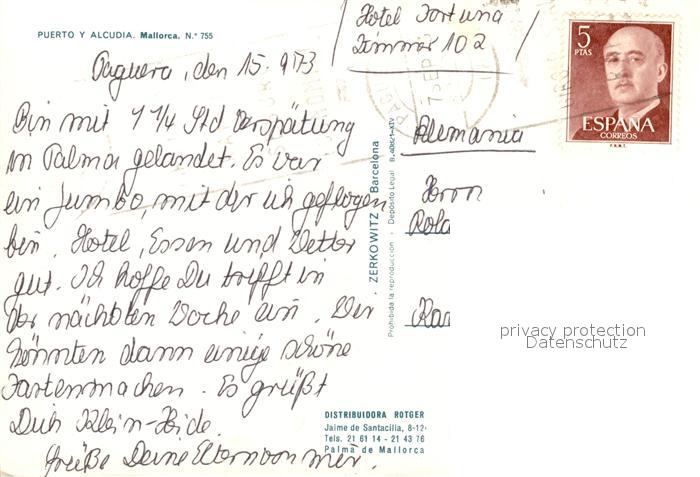 Hotel Fortuna
Zimmer 102
PUERTO Y ALCUDIA. Mallorca. N.º 755
Paguera, den 15. 9.73
Bin mit 1 1/4 Std Verspätung
in Palma gelandet. Es war
ein Jumbo, mit der ich geflogen
bin. Hotel, Essen und Wetter
gut. Ich hoffe Du trifft in
der nächsten Woche ein. Wir
könnten dann einige schöne
Tage machen. Es grüßt
Dich Klein-Heide.
Grüße Deine Eltern von mir.
5
PTAS
ESPAÑA
CORREOS
F.N.M.T.
Alemania
Herrn
Rola
ZERKOWITZ - Barcelona
Prohibida la reproducción - Depósito Legal B.
privacy protection
Datenschutz
DISTRIBUIDORA ROTGER
Jaime de Santacilia, 8-12
Tels. 21 61 14 - 21 43 76
Palma de Mallorca